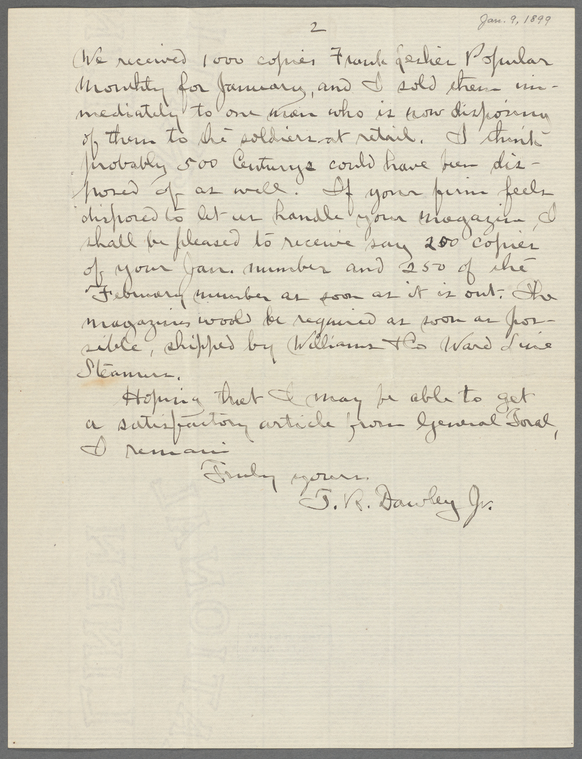 Jan. 9, 1899
2
We received 1000 copies Frank Leslies Popular
Monthly for January, and I sold them im-
mediately to one man who is now disposing
of them to the soldiers at retail. I think
probably 500 Centurys could have been dis-
posed of as well. If your firm feels
disposed to let us handle your magazine, I
shall be pleased to receive say 200 copies
of your Jan. number and 250 of the
February number as soon as it is out. The
magazines would be required as soon as pos-
sible, shipped by Williams & Co Ward Line
Steamers.
Hoping that I may be able to get
a satisfactory article from General Toral,
I remain
Truly yours.
T. R. Dawley Jr.